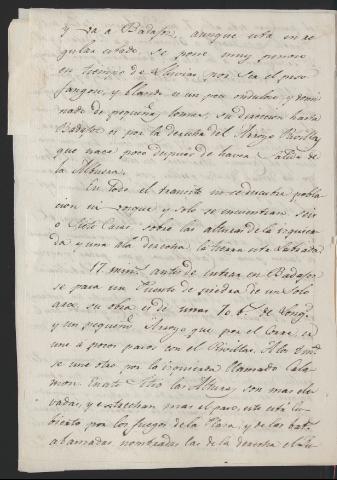 y va a Badajoz, aunque está en re
gular estado se pone muy penoso
en tiempo de lluvias por ser el piso
fangoso, y llano es un poco onduloso, y domi
nado de pequeñas lomas, su direccion hasta
Badajoz es por la derecha del Arroyo Rivilla,
que nace poco despues de haver salido de
la Albuera.
En todo el transito no se encuentra pobla
cion ni Bosque y solo se encuentran seis
o siete Casas sobre las alturas de la izquier
da y una á la derecha la tierra esta Labrada.
17 min.s antes de entrar en Badajoz
se pasa un Puente de piedra de un solo
arco, su obra es de unas 70 b.s de long.
y un pequeño Arroyo que por el Corre, se
une a pocos pasos con el Rivillas. A los 7 m.s
se une otro por la izquierda llamado Cala
mon. En este sitio las Alturas son mas ele
vadas, y estrechan mas el paso, este está cu
bierto por los fuegos de la Plaza, y de las bat.s
abanzadas, nombradas las de la derecha el